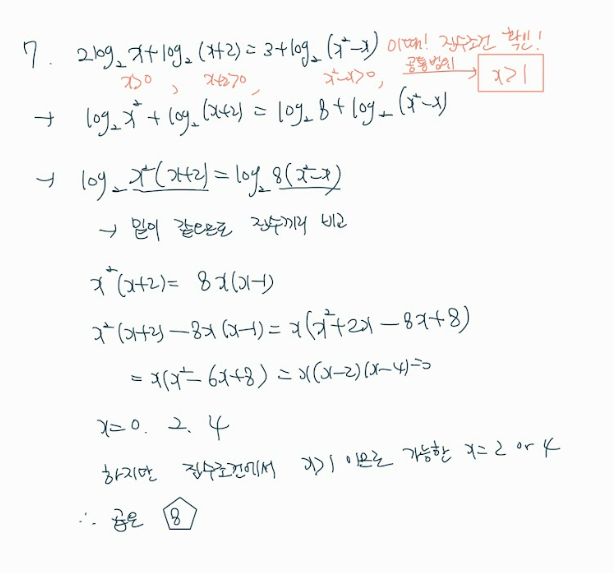 7. 2log₂x+log₂(x+2)=3+log₂(x²-x) 이때! 진수조건 확인!
x>0, x+2>0, x²-x>0, 공통범위 → x>1
→ log₂x²+log₂(x+2)=log₂8+log₂(x²-x)
→ log₂x²(x+2)=log₂8(x²-x)
→ 밑이 같으므로 진수끼리 비교
x²(x+2)= 8x(x-1)
x²(x+2)-8x(x-1)=x(x²+2x-8x+8)
=x(x²-6x+8)=x(x-2)(x-4)=0
x=0. 2. 4
하지만 진수조건에서 x>1 이므로 가능한 x=2 or 4
∴ 곱은 8